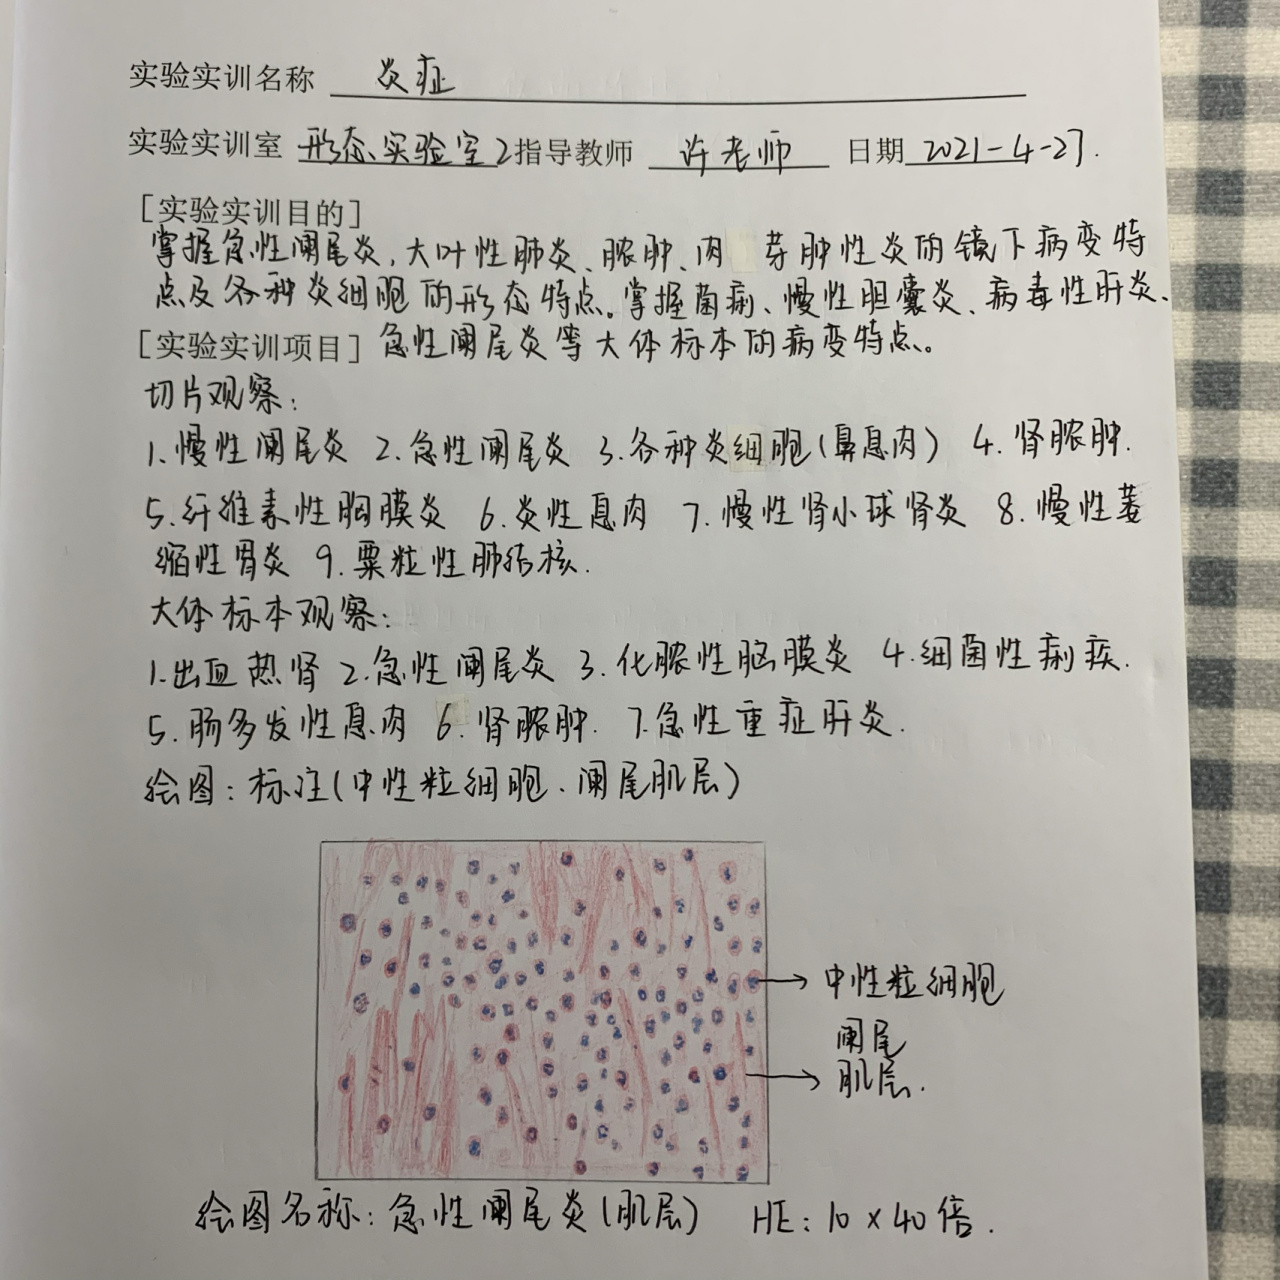 实验实训名称 炎症
实验实训室 形态实验室2 指导教师 许老师 日期 2021-4-27.
[实验实训目的]
掌握急性阑尾炎,大叶性肺炎、脓肿、肉芽肿性炎的镜下病变特
点及各种炎细胞的形态特点。掌握菌痢、慢性胆囊炎、病毒性肝炎、
[实验实训项目] 急性阑尾炎等大体标本的病变特点。
切片观察:
1.慢性阑尾炎 2.急性阑尾炎 3.各种炎细胞(鼻息肉) 4.肾脓肿.
5.纤维素性胸膜炎 6.炎性息肉 7.慢性肾小球肾炎 8.慢性萎
缩性胃炎 9.粟粒性肺结核.
大体标本观察:
1.出血热肾 2.急性阑尾炎 3.化脓性脑膜炎 4.细菌性痢疾.
5.肠多发性息肉 6.肾脓肿. 7.急性重症肝炎.
绘图:标注(中性粒细胞、阑尾肌层)
中性粒细胞
阑尾
肌层.
绘图名称:急性阑尾炎(肌层) HE:10×40倍.